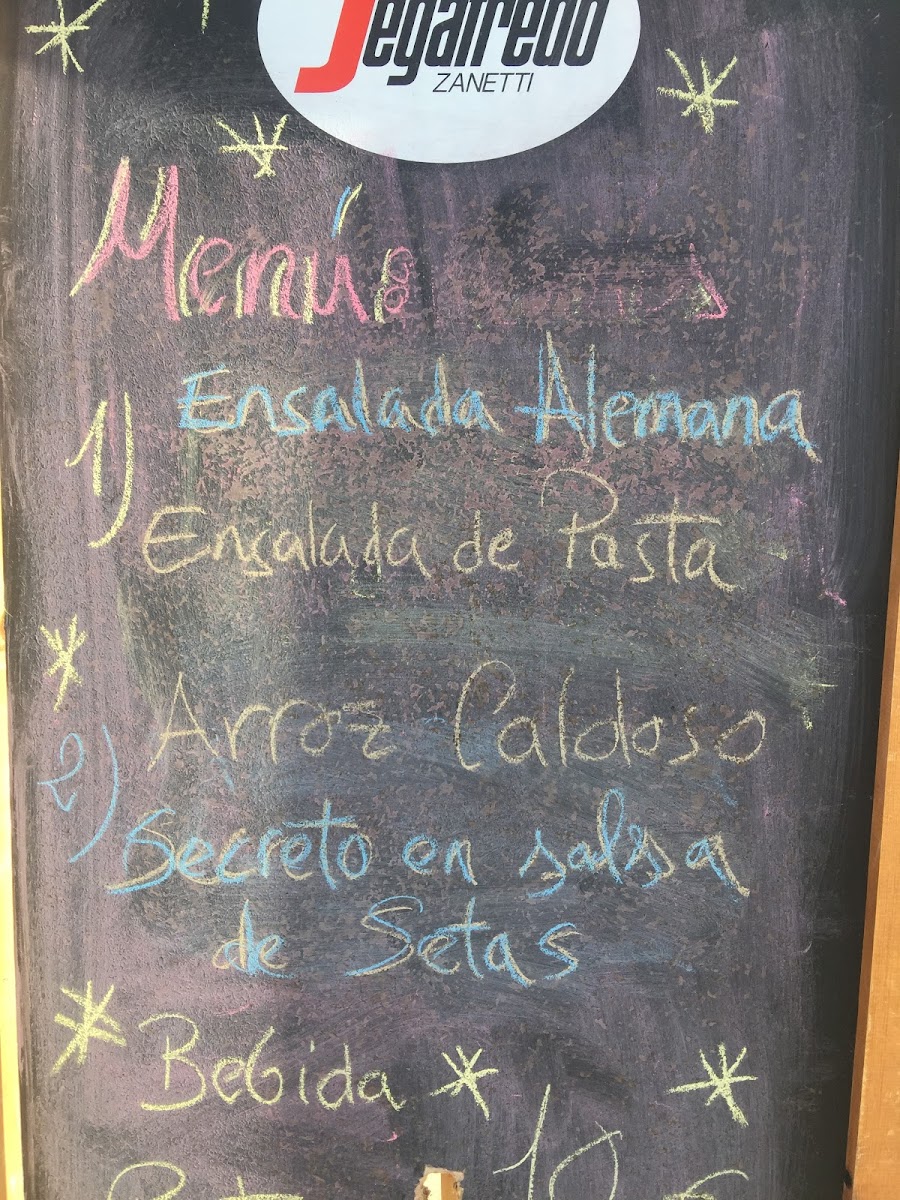 Segafredo
ZANETTI
Menú:
1) Ensalada Alemana
Ensalada de Pasta
Arroz Caldoso
2) Secreto en salsa
de Setas
Bebida
10 €